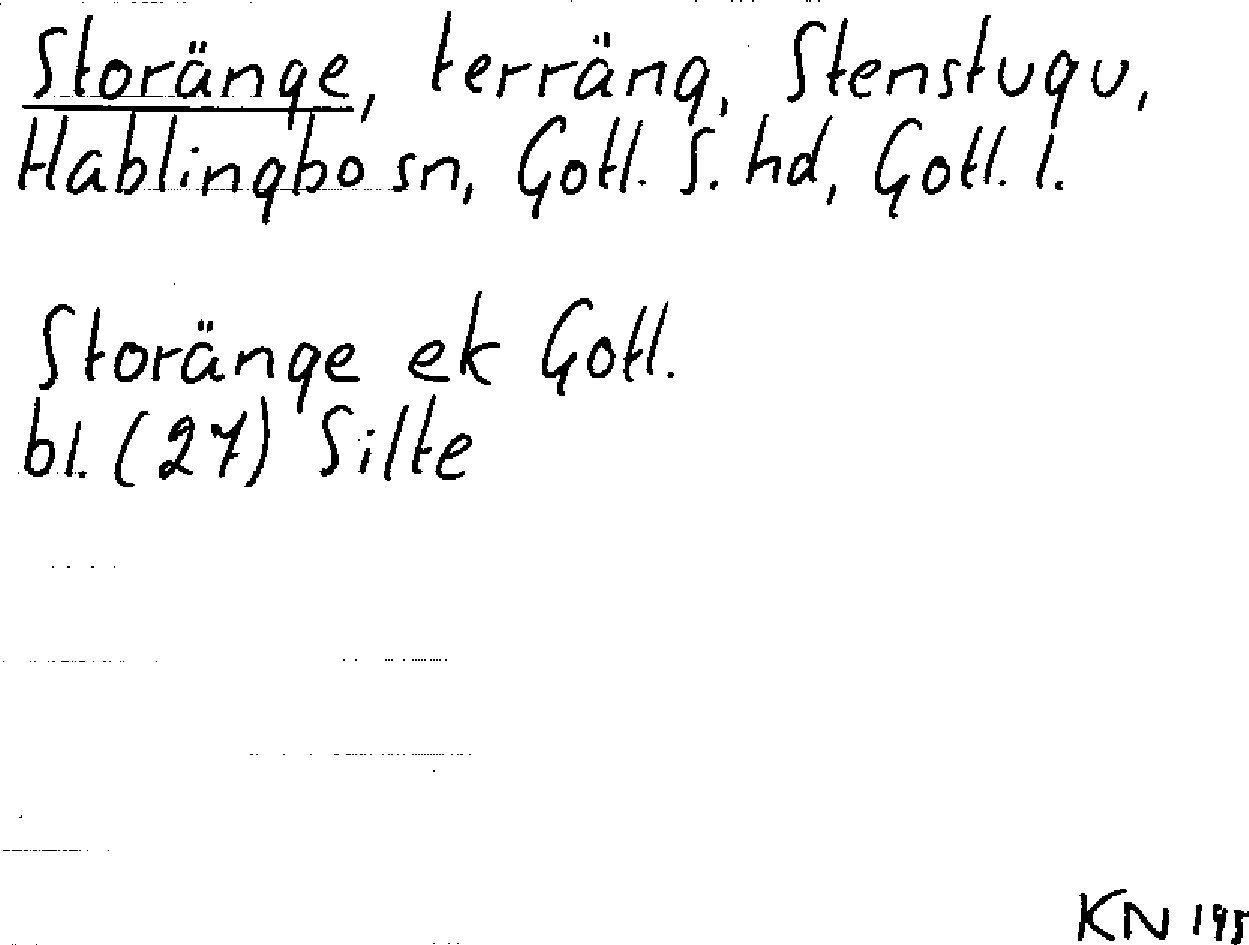 Storänge, terräng, Stenstugu,
Hablingbo sn, Gotl. S. hd, Gotl. l.
Storänge ek Gotl.
bl. (27) Silte
KN 195